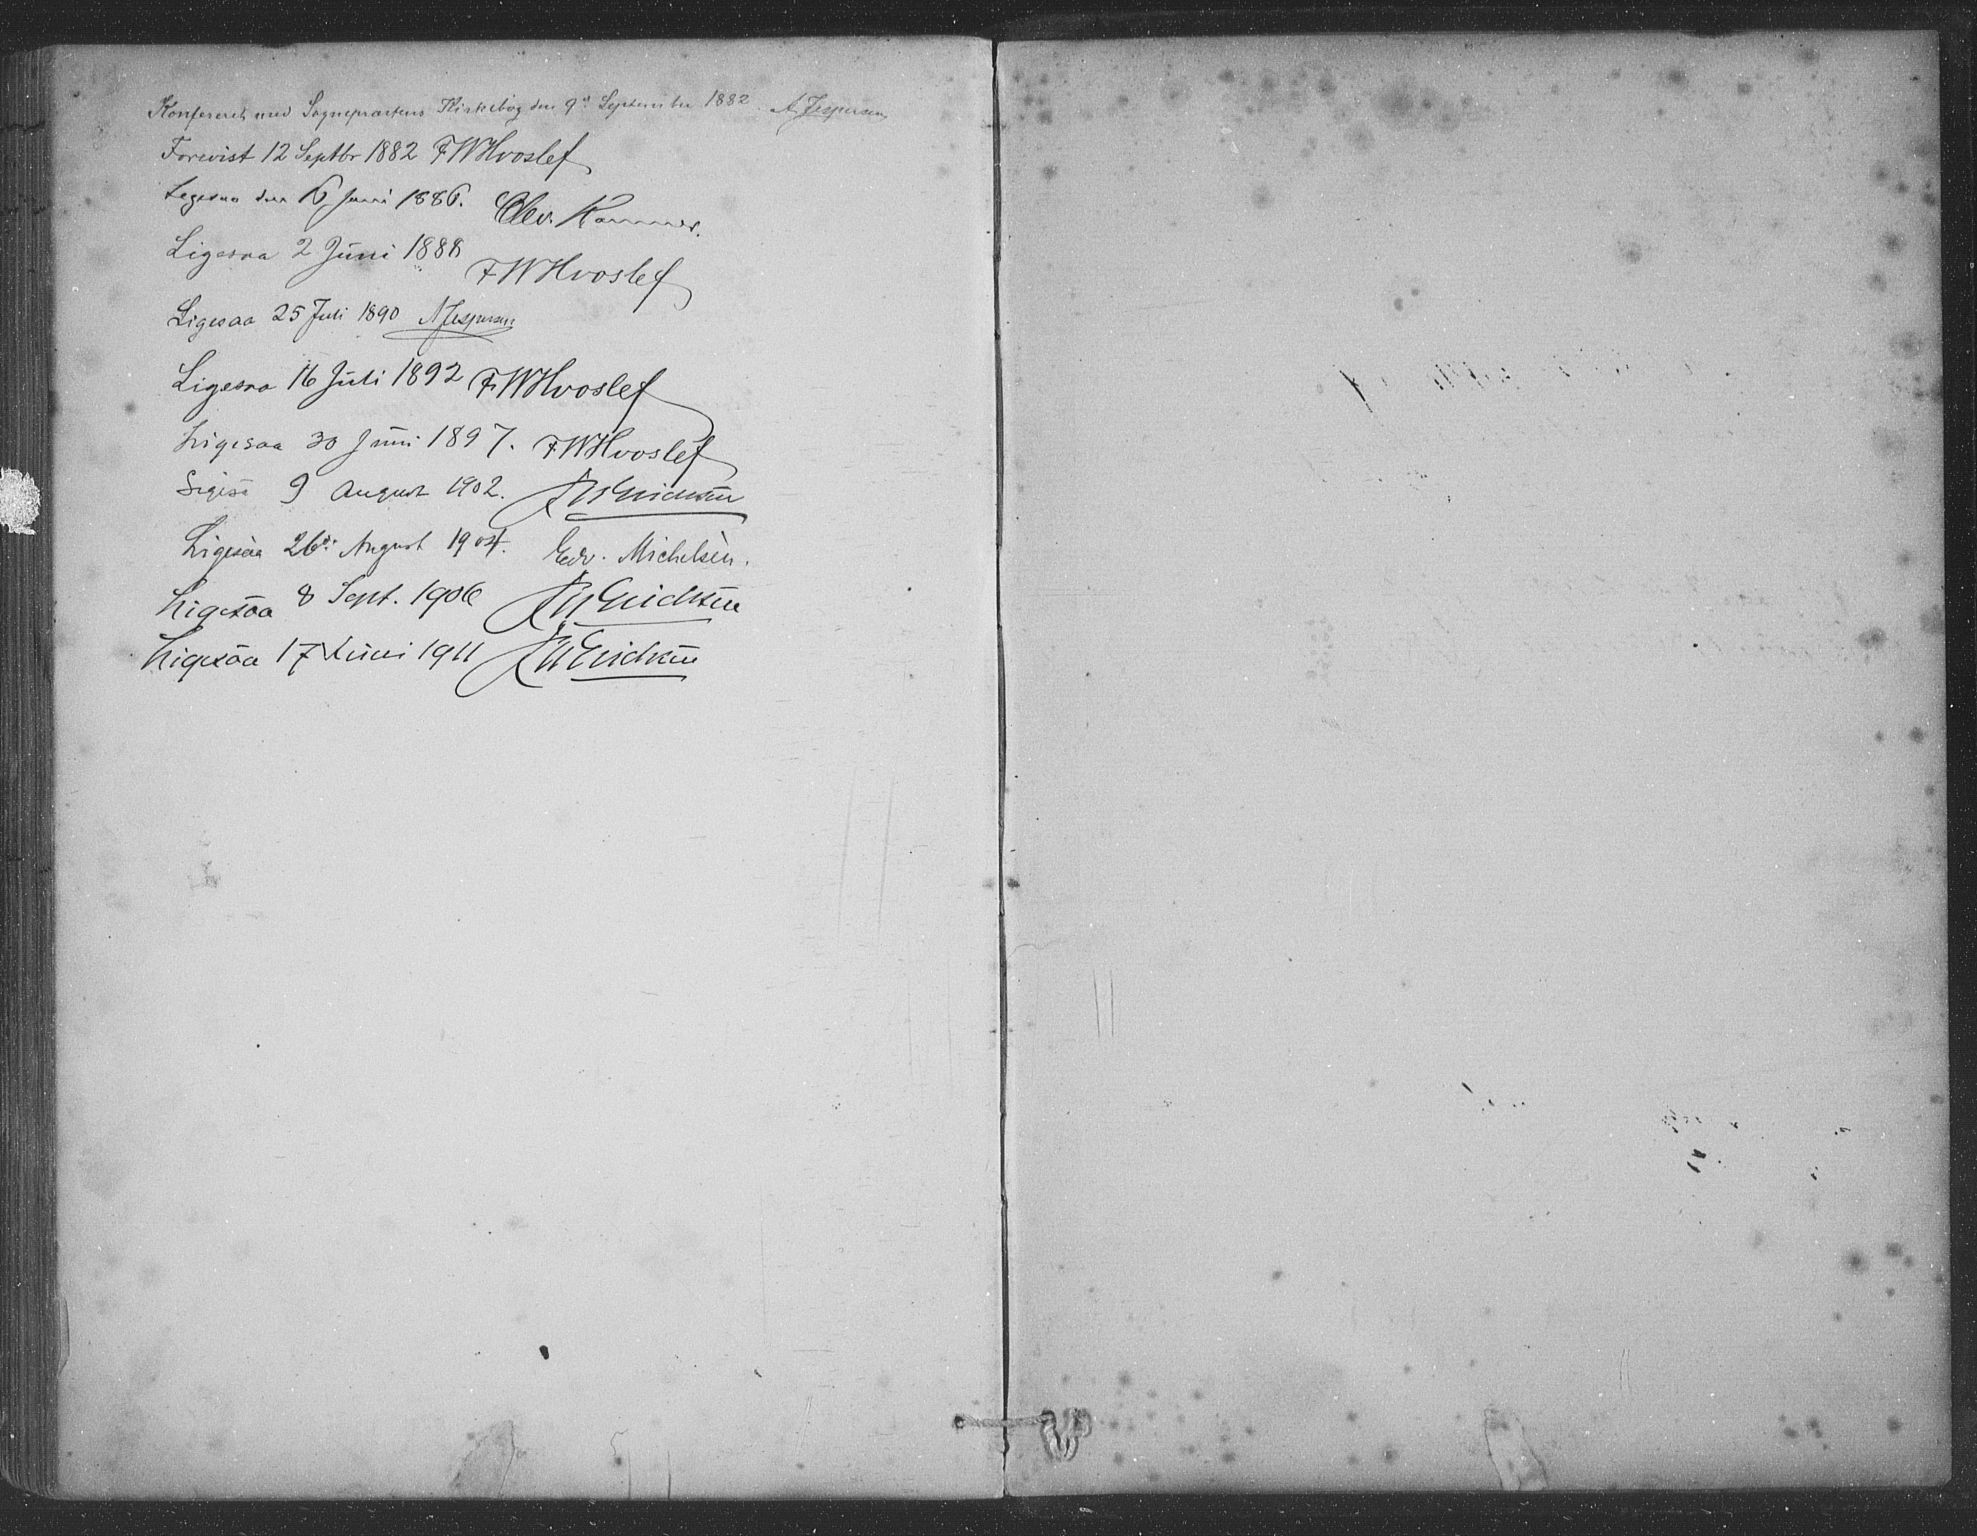 Konfereret med Sognepræstens Kirkebog den 9de September 1882. A. Jespersen
Forevist 12 Septbr 1882 FWHvoslef
Ligesaa den 16 Juni 1886.
Ligesaa 2 Juni 1888 FWHvoslef
Ligesaa 25 Juli 1890 AJespersen
Ligesaa 16 Juli 1892 FWHvoslef
Ligesaa 30 Juni 1897. FWHvoslef
Ligesa 9 August 1902. Erichsen
Ligesaa 26de August 1904. Edv. Michelsen.
Ligesaa 8 Sept. 1906 Erichsen
Ligesaa 17 Juni 1911 Erichsen